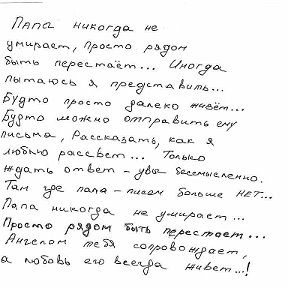 Папа никогда не
умирает, Просто рядом
быть перестаёт... Иногда
пытаюсь я представить...
Будто просто далеко живёт...
Будто можно отправить ему
письма, Рассказать, как я
люблю рассвет... Только
ждать ответ - увы бессмысленно.
Там где папа - писем больше НЕТ...
Папа никогда не умирает...
Просто рядом быть перестает...
Ангелом тебя сопровождает,
а любовь его всегда живет...!